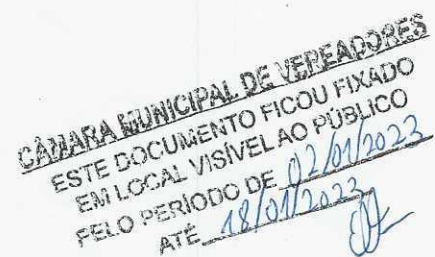 CÂMARA MUNICIPAL DE VEREADORES
ESTE DOCUMENTO FICOU FIXADO
EM LOCAL VISÍVEL AO PÚBLICO
PELO PERÍODO DE 02/01/2023
ATÉ 18/01/2023